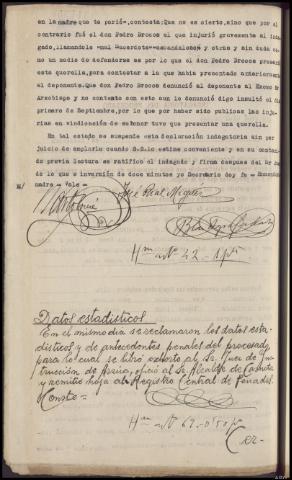 en la madre que te parió", contesta: Que no es cierto, sino que por el
contrario fué el don Pedro Brocos al que injurió gravemente al inda-
gado, llamándole "mal sacerdote" "escandaloso" y otras y sin duda co-
mo un modio de defenderse es por lo que el don Pedro Brocos presentó
esta querella, para contestar a la que había presentado anteriormente
el deponente. Que don Pedro Brocos denunció al deponente al Excmo Sr
Arzobispo y no contento con esto aun lo denunció digo insultó el día
primero de Septiembre, por lo que por haber sido publicas las inju-
rias en vindicación de su honor tuvo que presentar una querella.
En tal estado se suspende esta declaración indagatoria sin per-
juicio de ampliarla cuando S.S. lo estime conveniente y en su contenido
de previa lectura se ratificó el indagado y firma despues del Sr Juez
de lo que e inversión de doce minutos yo Secretario doy fe = Enmendado
madre = Vale =
José Real
Hnos nº 42
Datos estadísticos
En el mismo dia se reclamaron los datos esta-
disticos y de antecedentes penales del procesado
para lo cual se libró exhorto al Sr. Juez de Ins-
trucción de Arzúa, ofició al Sr. Alcalde de
y remitió hoja al Registro Central de Penados.
Consta =
Hnos nº 62